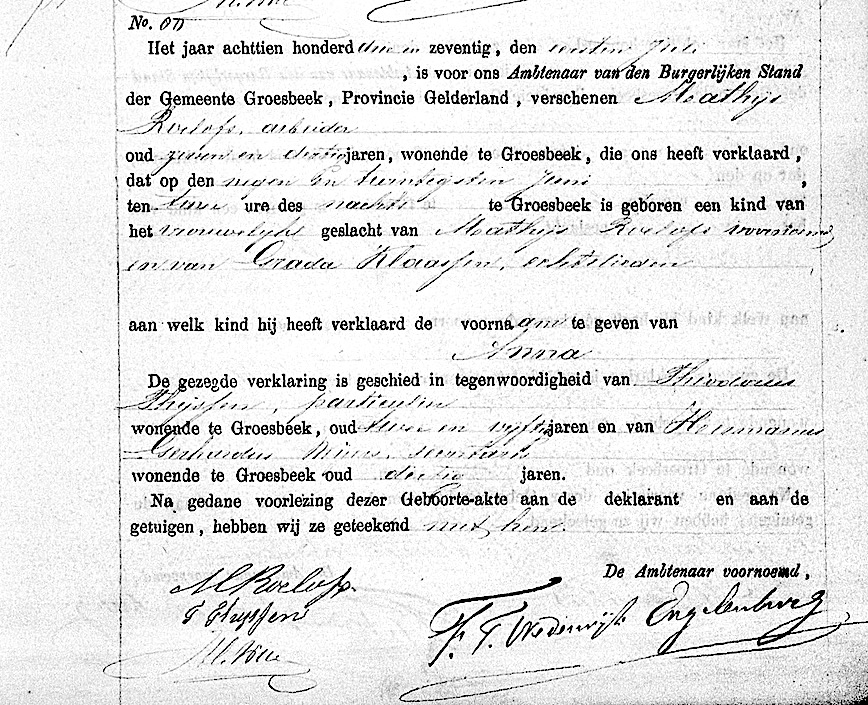 No.
Het jaar achttien honderd drie en zeventig, den eersten Juli
, is voor ons Ambtenaar van den Burgerlijken Stand
der Gemeente Groesbeek, Provincie Gelderland, verschenen Mathijs
Roelofs, arbeider
oud zeven en dertig jaren, wonende te Groesbeek, die ons heeft verklaard,
dat op den negen en twintigsten Juni ,
ten twee ure des nachts te Groesbeek is geboren een kind van
het vrouwelijk geslacht van Mathijs Roelofs voornoemd
en van Grada Klaassen, echtelieden
aan welk kind hij heeft verklaard de voornaam te geven van
Anna
De gezegde verklaring is geschied in tegenwoordigheid van Theodorus
Thijssen, particulier
wonende te Groesbeek, oud twee en vijftig jaren en van Hermanus
Gerhardus
wonende te Groesbeek oud dertig jaren.
Na gedane voorlezing dezer Geboorte-akte aan de deklarant en aan de
getuigen, hebben wij ze geteekend met hen.
De Ambtenaar voornoemd,
M Roelofs
T Thijssen
Engelenburg